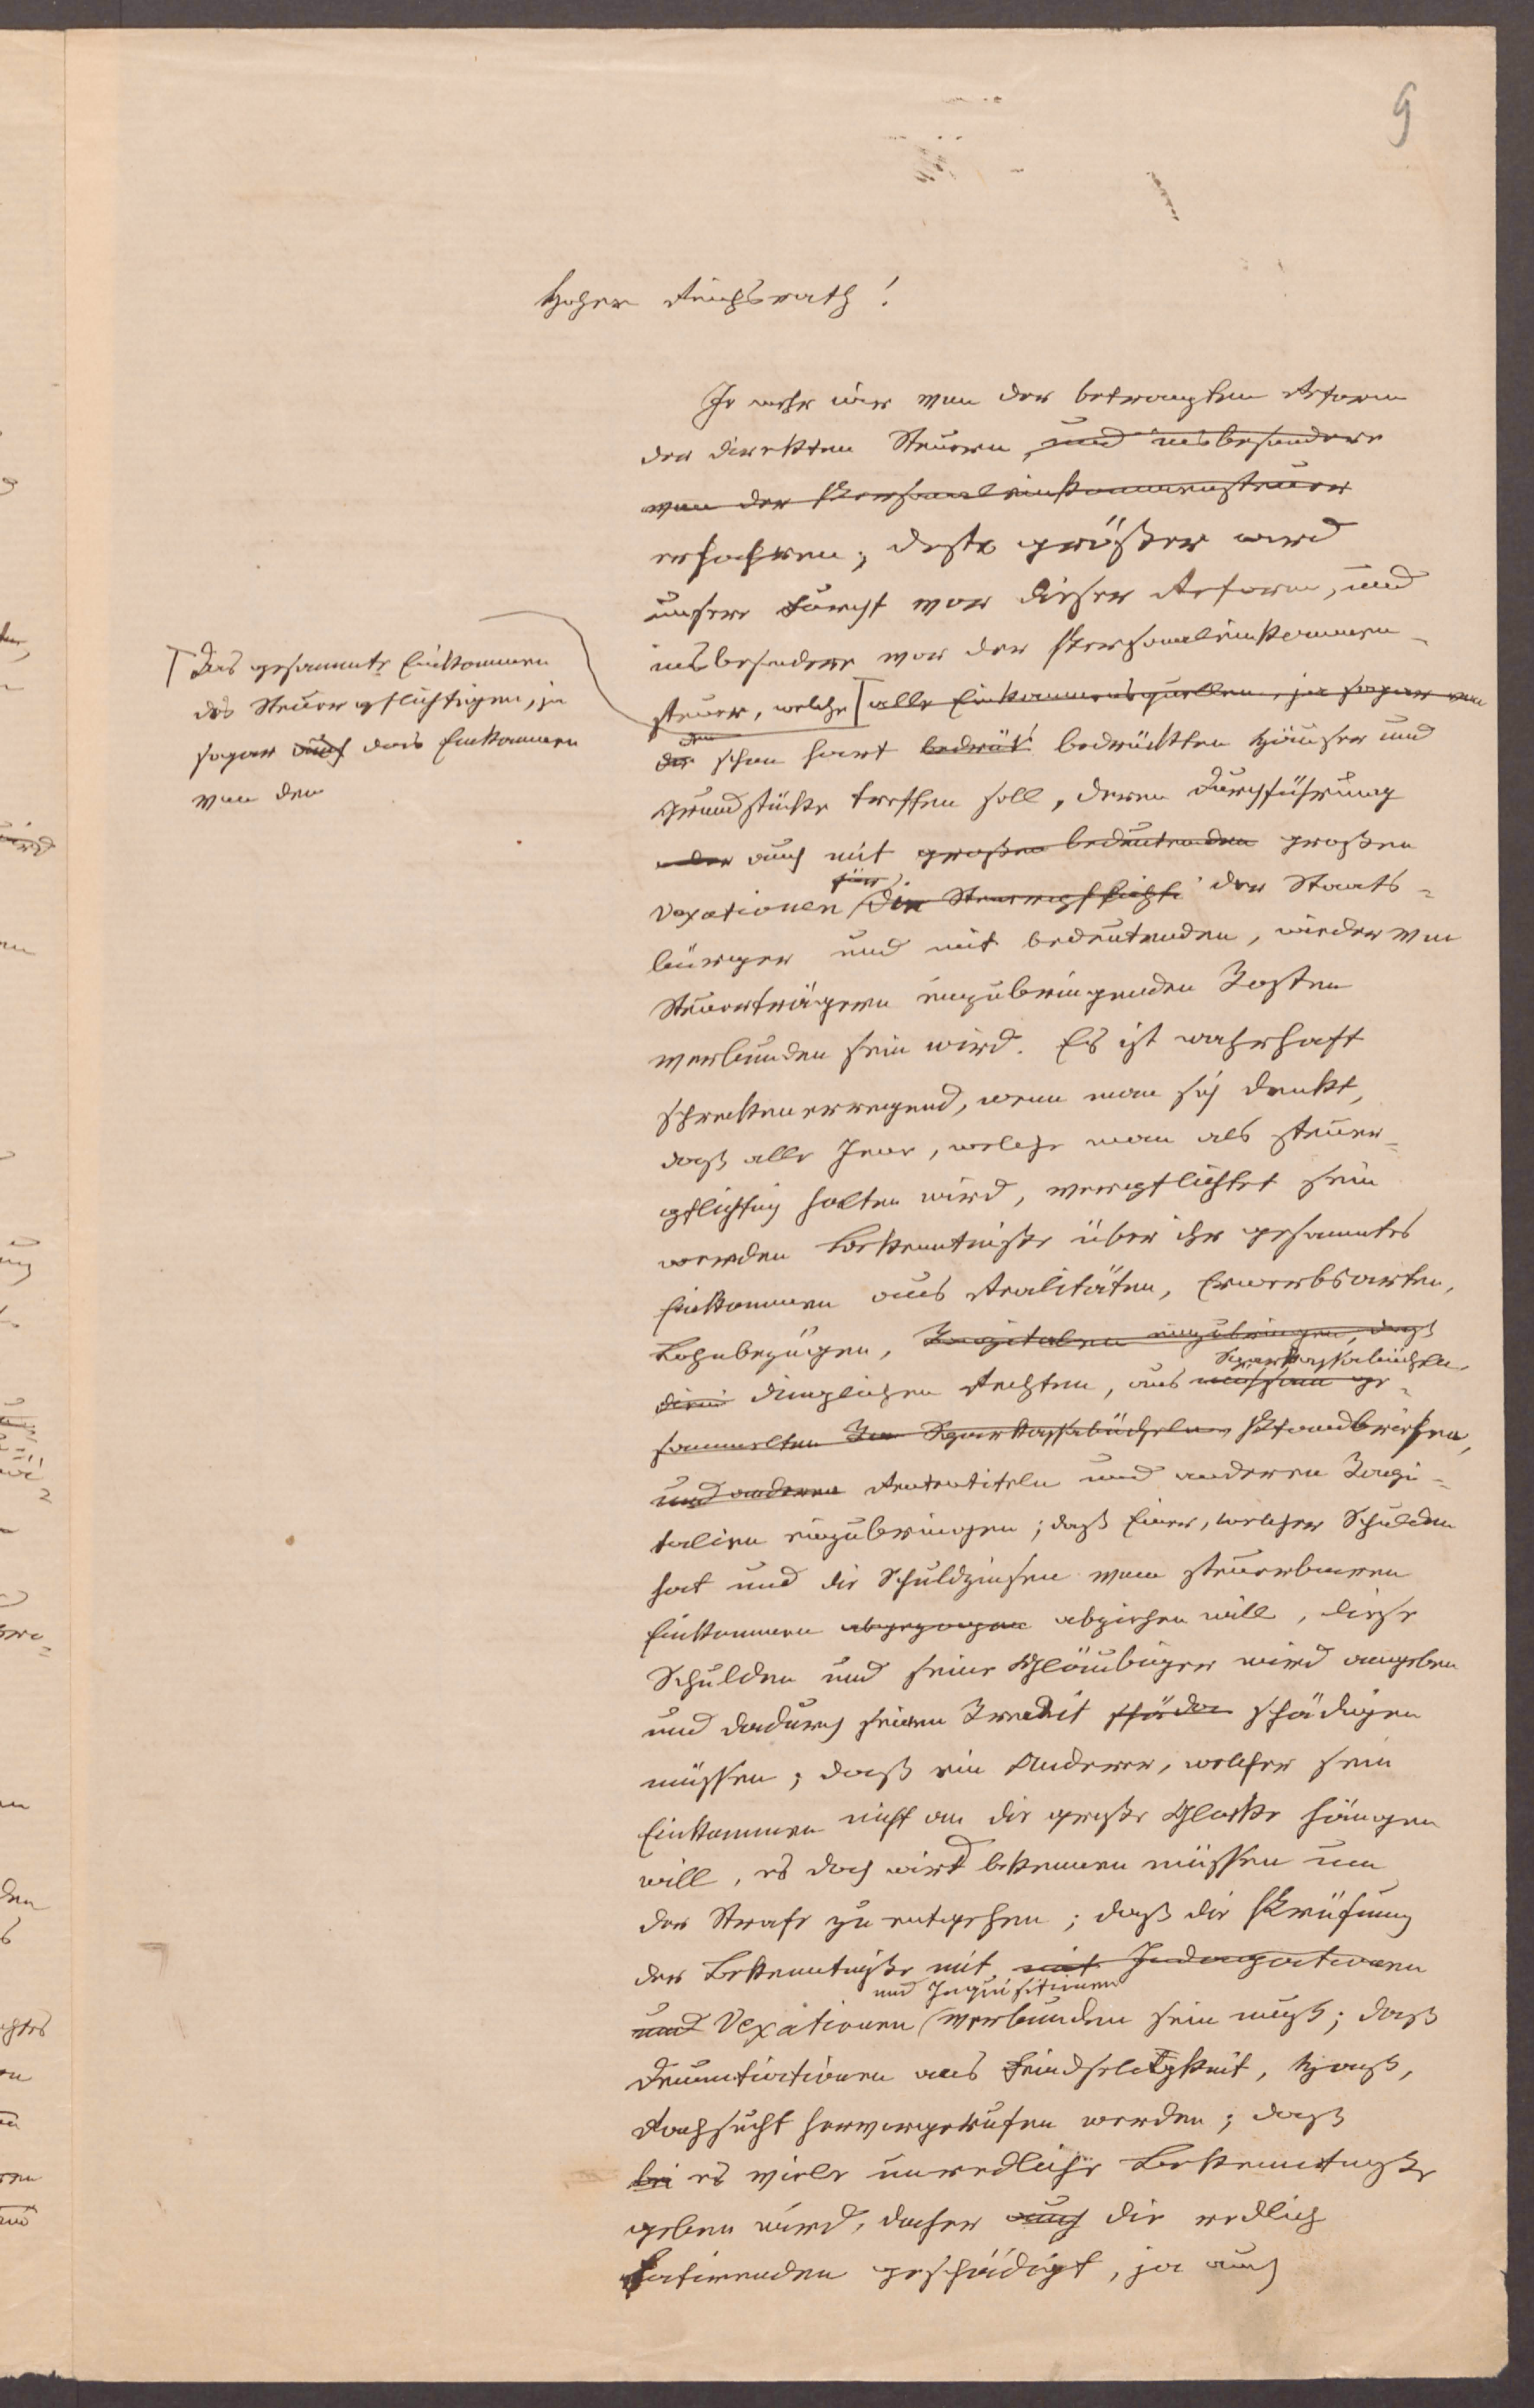 9
Hoher Reichsrath!
Je mehr wir von der beantragten Reform
der direkten Steuern, und insbesondere
von der Personaleinkommensteuer
erfahren, desto größer wird
unsere Furcht vor dieser Reform, und
insbesondere vor der Personaleinkommen-
steuer, welche alle Einkommensquellen, ja sogar von
Das gesammte Einkommen
des Steuerpflichtigen, ja
sogar auch das Einkommen
von den
den
der schon hart bedrük bedrückten Häuser und
Grundstücke treffen soll, deren Durchführung
aber auch mit großen bedeutenden großen
für
Vexationen die Steuerpflicht der Staats-
bürger und mit bedeutenden, wieder von
Steuerträgern einzubringenden Kosten
verbunden sein wird. Es ist wahrhaft
schreckenerregend, wenn man sich denkt,
daß alle Jene, welche man als steuer-
pflichtig halten wird, verpflichtet sein
werden Bekenntniße über ihr gesammtes
Einkommen aus Realitäten, Erwerbsarten,
Lohnbezügen, Kapitalien einzubringen, daß
Sparkassabücheln,
dinglichen Rechten, aus mühsam ge-
sammelten Sparkassabücheln, Pfandbriefen,
und anderen Rententiteln und anderen Kapi-
talien einzubringen; daß Einer, welcher Schulden
hat und die Schuldzinsen vom steuerbaren
Einkommen abgezogen abziehen will, diese
Schulden und seine Gläubiger wird angeben
und dadurch seinen Kredit schäde schädigen
müssen; daß ein Anderer, welcher sein
Einkommen nicht an die große Glocke hängen
will, es doch wird bekennen müssen um
der Strafe zu entgehen; daß die Prüfung
der Bekenntniße mit mit Indagationen
und Inquisitionen
und Vexationen verbunden sein muß; daß
Denuntiationen aus Feindseligkeit, Haß,
Rachsucht hervorgerufen werden; daß
bei es viele unredliche Bekenntniße
geben wird, daher auch die redlich
Fatirenden geschädigt, ja auch